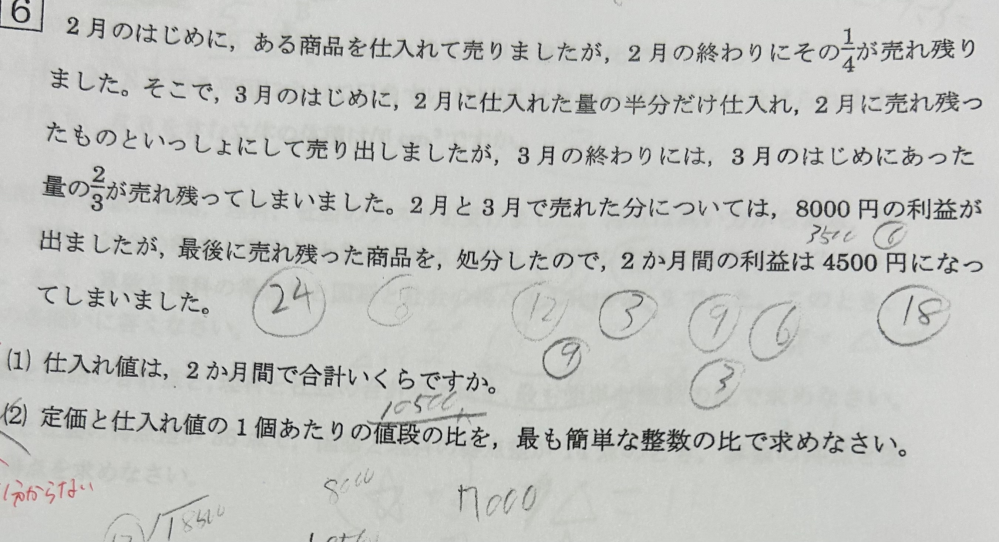 6
2月のはじめに，ある商品を仕入れて売りましたが，2月の終わりにその1/4が売れ残り
ました。そこで，3月のはじめに，2月に仕入れた量の半分だけ仕入れ，2月に売れ残っ
たものといっしょにして売り出しましたが，3月の終わりには，3月のはじめにあった
量の2/3が売れ残ってしまいました。2月と3月で売れた分については，8000円の利益が
3500 6
出ましたが，最後に売れ残った商品を，処分したので，2か月間の利益は4500円になっ
てしまいました。
24 6 12 3 9 6 18
9 3
(1) 仕入れ値は，2か月間で合計いくらですか。
10500
(2) 定価と仕入れ値の1個あたりの値段の比を，最も簡単な整数の比で求めなさい。
分からない
8000 17000
18500